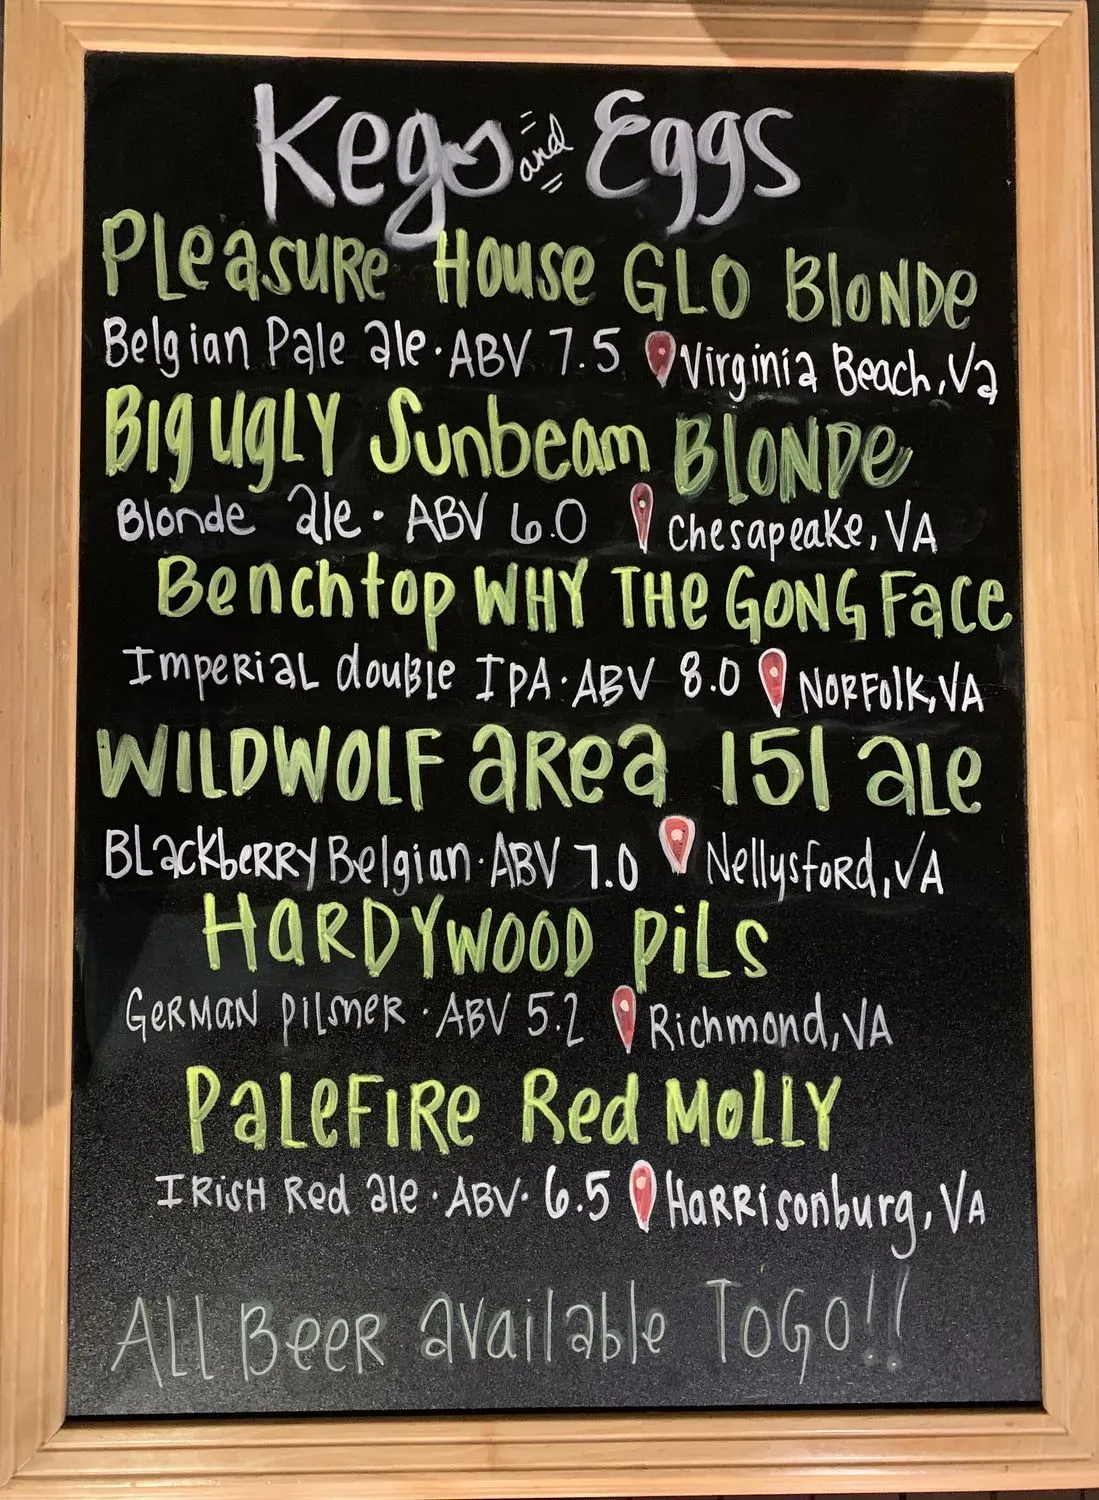 Kegs and Eggs
Pleasure House GLO Blonde
Belgian Pale ale · ABV 7.5 Virginia Beach, Va
Big Ugly Sunbeam Blonde
Blonde ale · ABV 6.0 Chesapeake, VA
Benchtop WHY THE GONG Face
Imperial double IPA · ABV 8.0 NORFOLK, VA
WILDWOLF area 151 ale
Blackberry Belgian · ABV 7.0 Nellysford, VA
HARDYWOOD PILS
GERMAN PILSNER · ABV 5.2 Richmond, VA
PALEFIRE Red MOLLY
IRISH Red ale · ABV · 6.5 Harrisonburg, VA
ALL BEER available TO GO!!